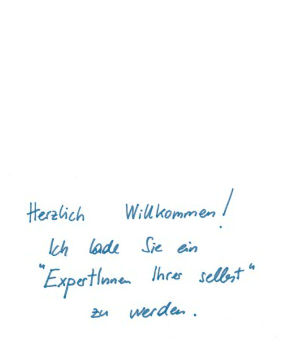 Herzlich Willkommen!
Ich lade Sie ein
"ExpertInnen Ihrer selbst"
zu werden.